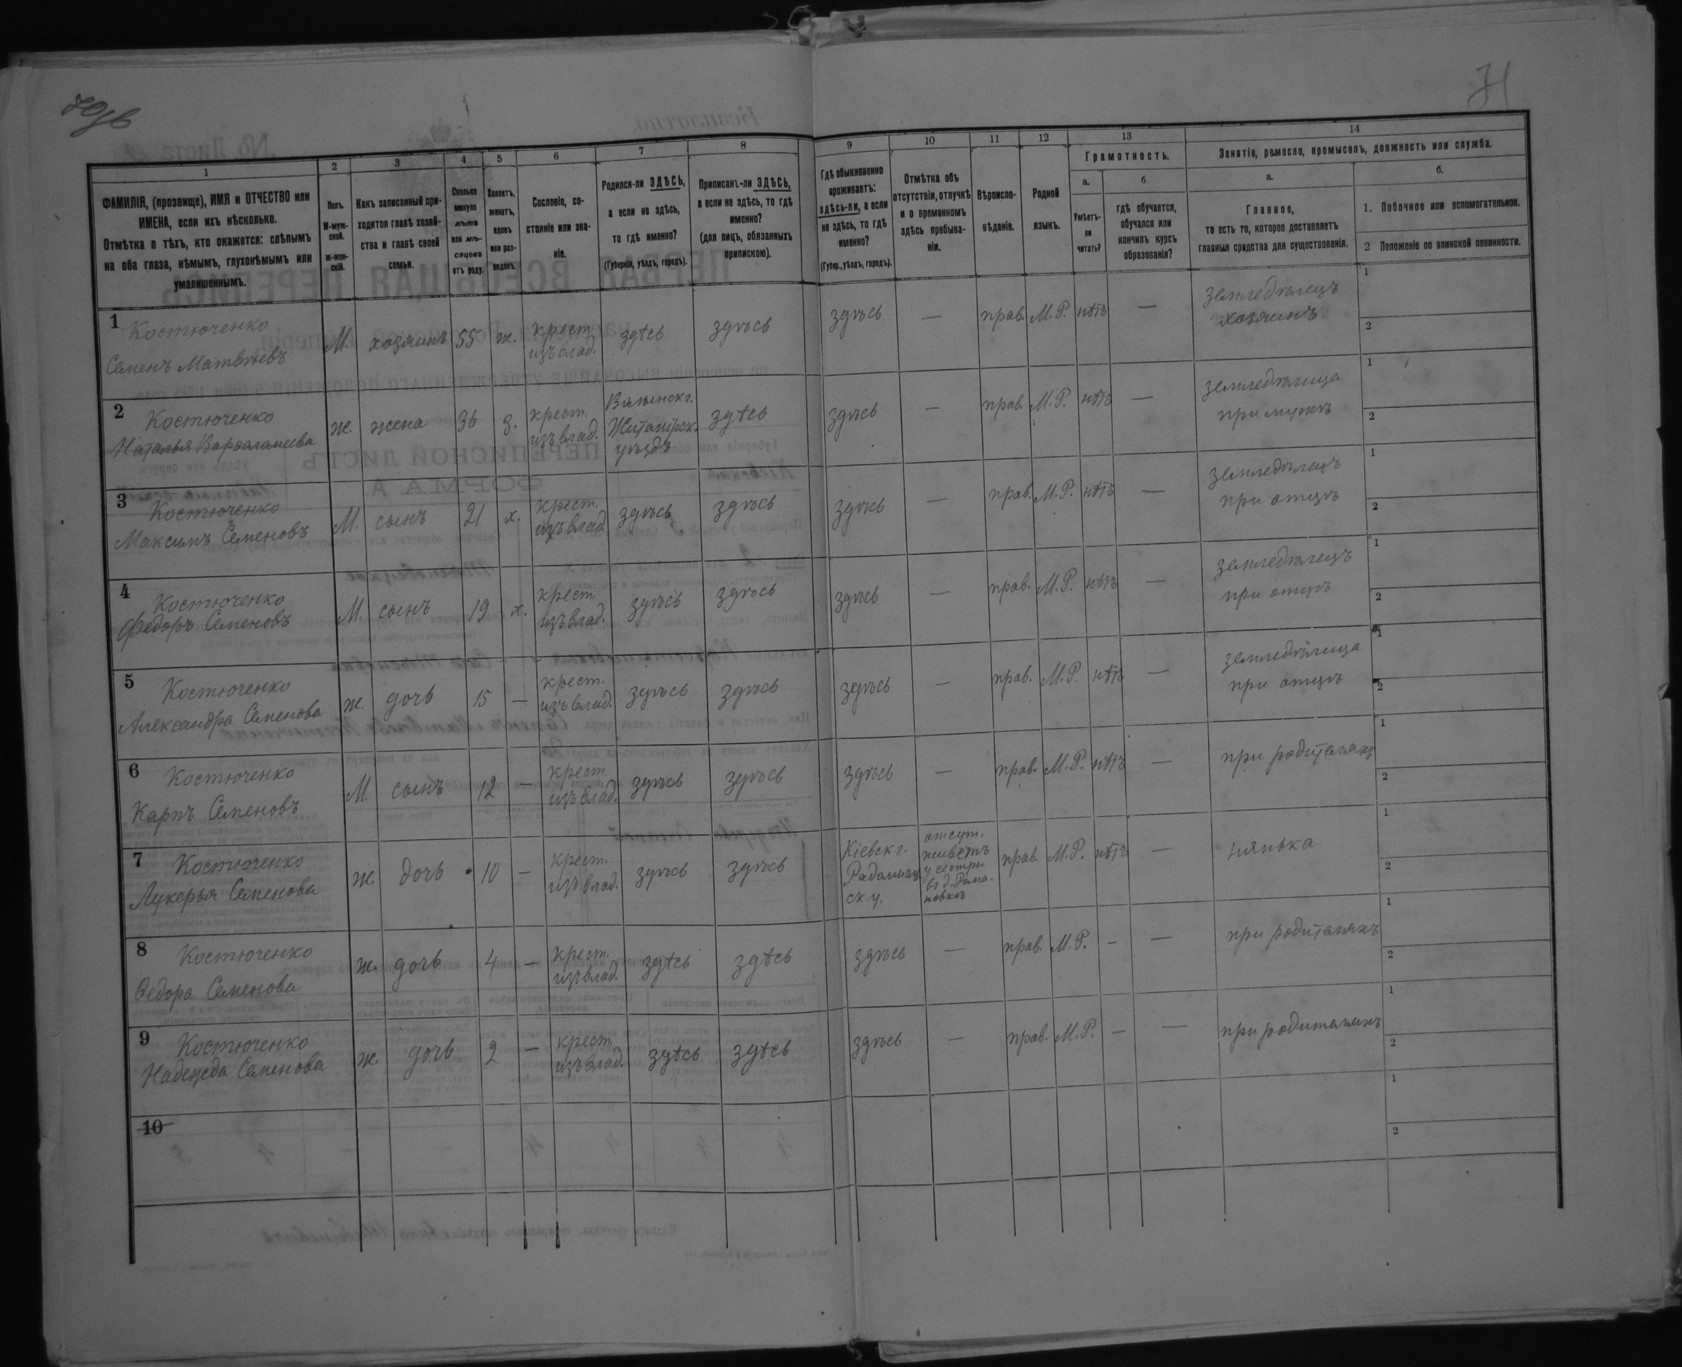 70об
71
1 2 3 4 5 6 7 8 9 10 11 12 13 14
ФАМИЛІЯ, (прозвище), ИМЯ и ОТЧЕСТВО или ИМЕНА, если ихъ нѣсколько.
Отмѣтка о тѣхъ, кто окажется: слѣпымъ на оба глаза, нѣмымъ, глухонѣмымъ или умалишеннымъ.
Полъ.
М-муж-
ской.
Ж-жен-
скій.
Какъ записанный при-
ходится главѣ хозяй-
ства и главѣ своей
семьи.
Сколько
минуло
лѣтъ
или мѣ-
сяцевъ
отъ роду.
Холостъ,
женатъ,
вдовъ
или раз-
веденъ.
Сословіе, со-
стояніе или зва-
ніе.
Родился-ли ЗДѢСЬ,
а если не здѣсь,
то гдѣ именно?
(Губернія, уѣздъ, городъ).
Приписанъ-ли ЗДѢСЬ,
а если не здѣсь, то гдѣ
именно?
(для лицъ, обязанныхъ
припискою).
Гдѣ обыкновенно
проживаетъ:
здѣсь-ли, а если
не здѣсь, то гдѣ
именно?
(Губер., уѣздъ, городъ).
Отмѣтка объ
отсутствіи, отлучкѣ
и о временномъ
здѣсь пребыва-
ніи.
Вѣроиспо-
вѣданіе.
Родной
языкъ.
Грамотность.
а.
Умѣетъ-
ли
читать?
б.
гдѣ обучается,
обучался или
кончилъ курсъ
образованія?
Занятіе, ремесло, промыселъ, должность или служба.
а.
Главное,
то есть то, которое доставляетъ
главныя средства для существованія.
б.
1. Побочное или вспомогательное.
2 Положеніе по воинской повинности.
1 Костюченко
Семенъ Матвѣевъ
М. хозяинъ 55 ж. крест. изъ влад. здѣсь здѣсь здѣсь — прав. М.Р. нѣтъ — земледѣлецъ хозяинъ
2 Костюченко
Наталья Варфаламеева
ж жена 36 з. крест. изъ влад. Волынск г. Житомірск. уѣздъ здѣсь здѣсь — прав. М.Р. нѣтъ — земледѣлица при мужѣ
3 Костюченко
Максимъ Семеновъ
М. сынъ 21 х. крест. изъ влад здѣсь здѣсь здѣсь — прав. М.Р. нѣтъ — земледѣлецъ при отцѣ
4 Костюченко
Федоръ Семеновъ
М. сынъ 19 х. крест изъ влад. здѣсь здѣсь здѣсь — прав. М.Р. нѣтъ — земледѣлецъ при отцѣ
5 Костюченко
Александра Семенова
ж дочь 15 — крест. изъ влад. здѣсь здѣсь здѣсь — прав. М.Р. нѣтъ — земледѣлица при отцѣ
6 Костюченко
Карпъ Семеновъ
М сынъ 12 — крест. изъ влад. здѣсь здѣсь здѣсь — прав. М.Р. нѣтъ — при родителяхъ
7 Костюченко
Лукерья Семенова
ж. дочь 10 — крест. изъ влад. здѣсь здѣсь Кіевск г. Радомысл ск у. отсут. живетъ у сестры въ д. Рома- новкѣ прав. М.Р. нѣтъ — нянька
8 Костюченко
Федора Семенова
ж. дочь 4 — крест. изъ влад. здѣсь здѣсь здѣсь — прав. М.Р. — — при родителяхъ
9 Костюченко
Надежда Семенова
ж дочь 2 — крест. изъ влад. здѣсь здѣсь здѣсь — прав. М.Р. — — при родителяхъ
10